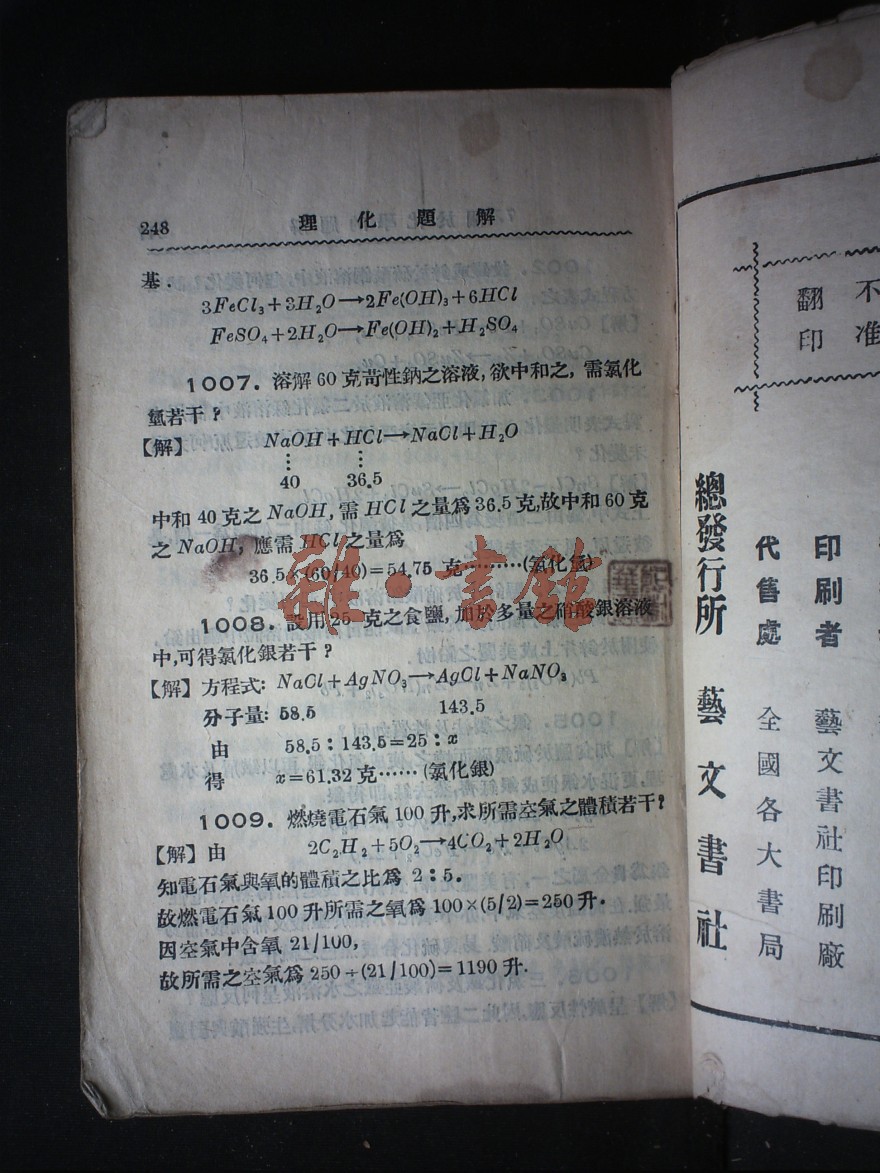 248
理化題解
基.
3FeCl₃+3H₂O→2Fe(OH)₃+6HCl
FeSO₄+2H₂O→Fe(OH)₂+H₂SO₄
1007. 溶解60克苛性鈉之溶液,欲中和之,需氯化
氫若干?
【解】 NaOH+HCl→NaCl+H₂O
40 36.5
中和40克之NaOH,需HCl之量爲36.5克,故中和60克
之NaOH,應需HCl之量爲
36.5×(60/40)=54.75 克………(氯化氫)
1008. 設用25克之食鹽,加於多量之硝酸銀溶液
中,可得氯化銀若干?
【解】方程式: NaCl+AgNO₃→AgCl+NaNO₃
分子量: 58.5 143.5
由 58.5:143.5=25:x
得 x=61.32克……(氯化銀)
1009. 燃燒電石氣100升,求所需空氣之體積若干?
【解】由 2C₂H₂+5O₂→4CO₂+2H₂O
知電石氣與氧的體積之比爲 2:5.
故燃電石氣100升所需之氧爲 100×(5/2)=250升.
因空氣中含氧 21/100,
故所需之空氣爲 250÷(21/100)=1190升.
雜·書館
不准
翻印
印刷者 藝文書社印刷廠
代售處 全國各大書局
總發行所 藝文書社